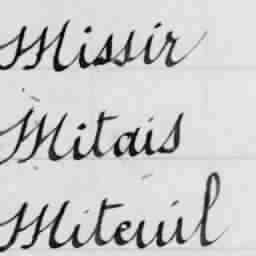 Missir
Mitais
Miteuil